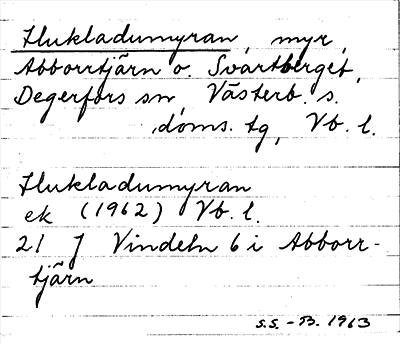 Flukladumyran, myr,
Abborrtjärn o. Svartberget,
Degerfors sn, Västerb. s.
doms. tg, Vb. l.
Flukladumyran
ek (1962) Vb. l.
21 J Vindeln 6 i Abborr-
tjärn
S.S. - B. 1963